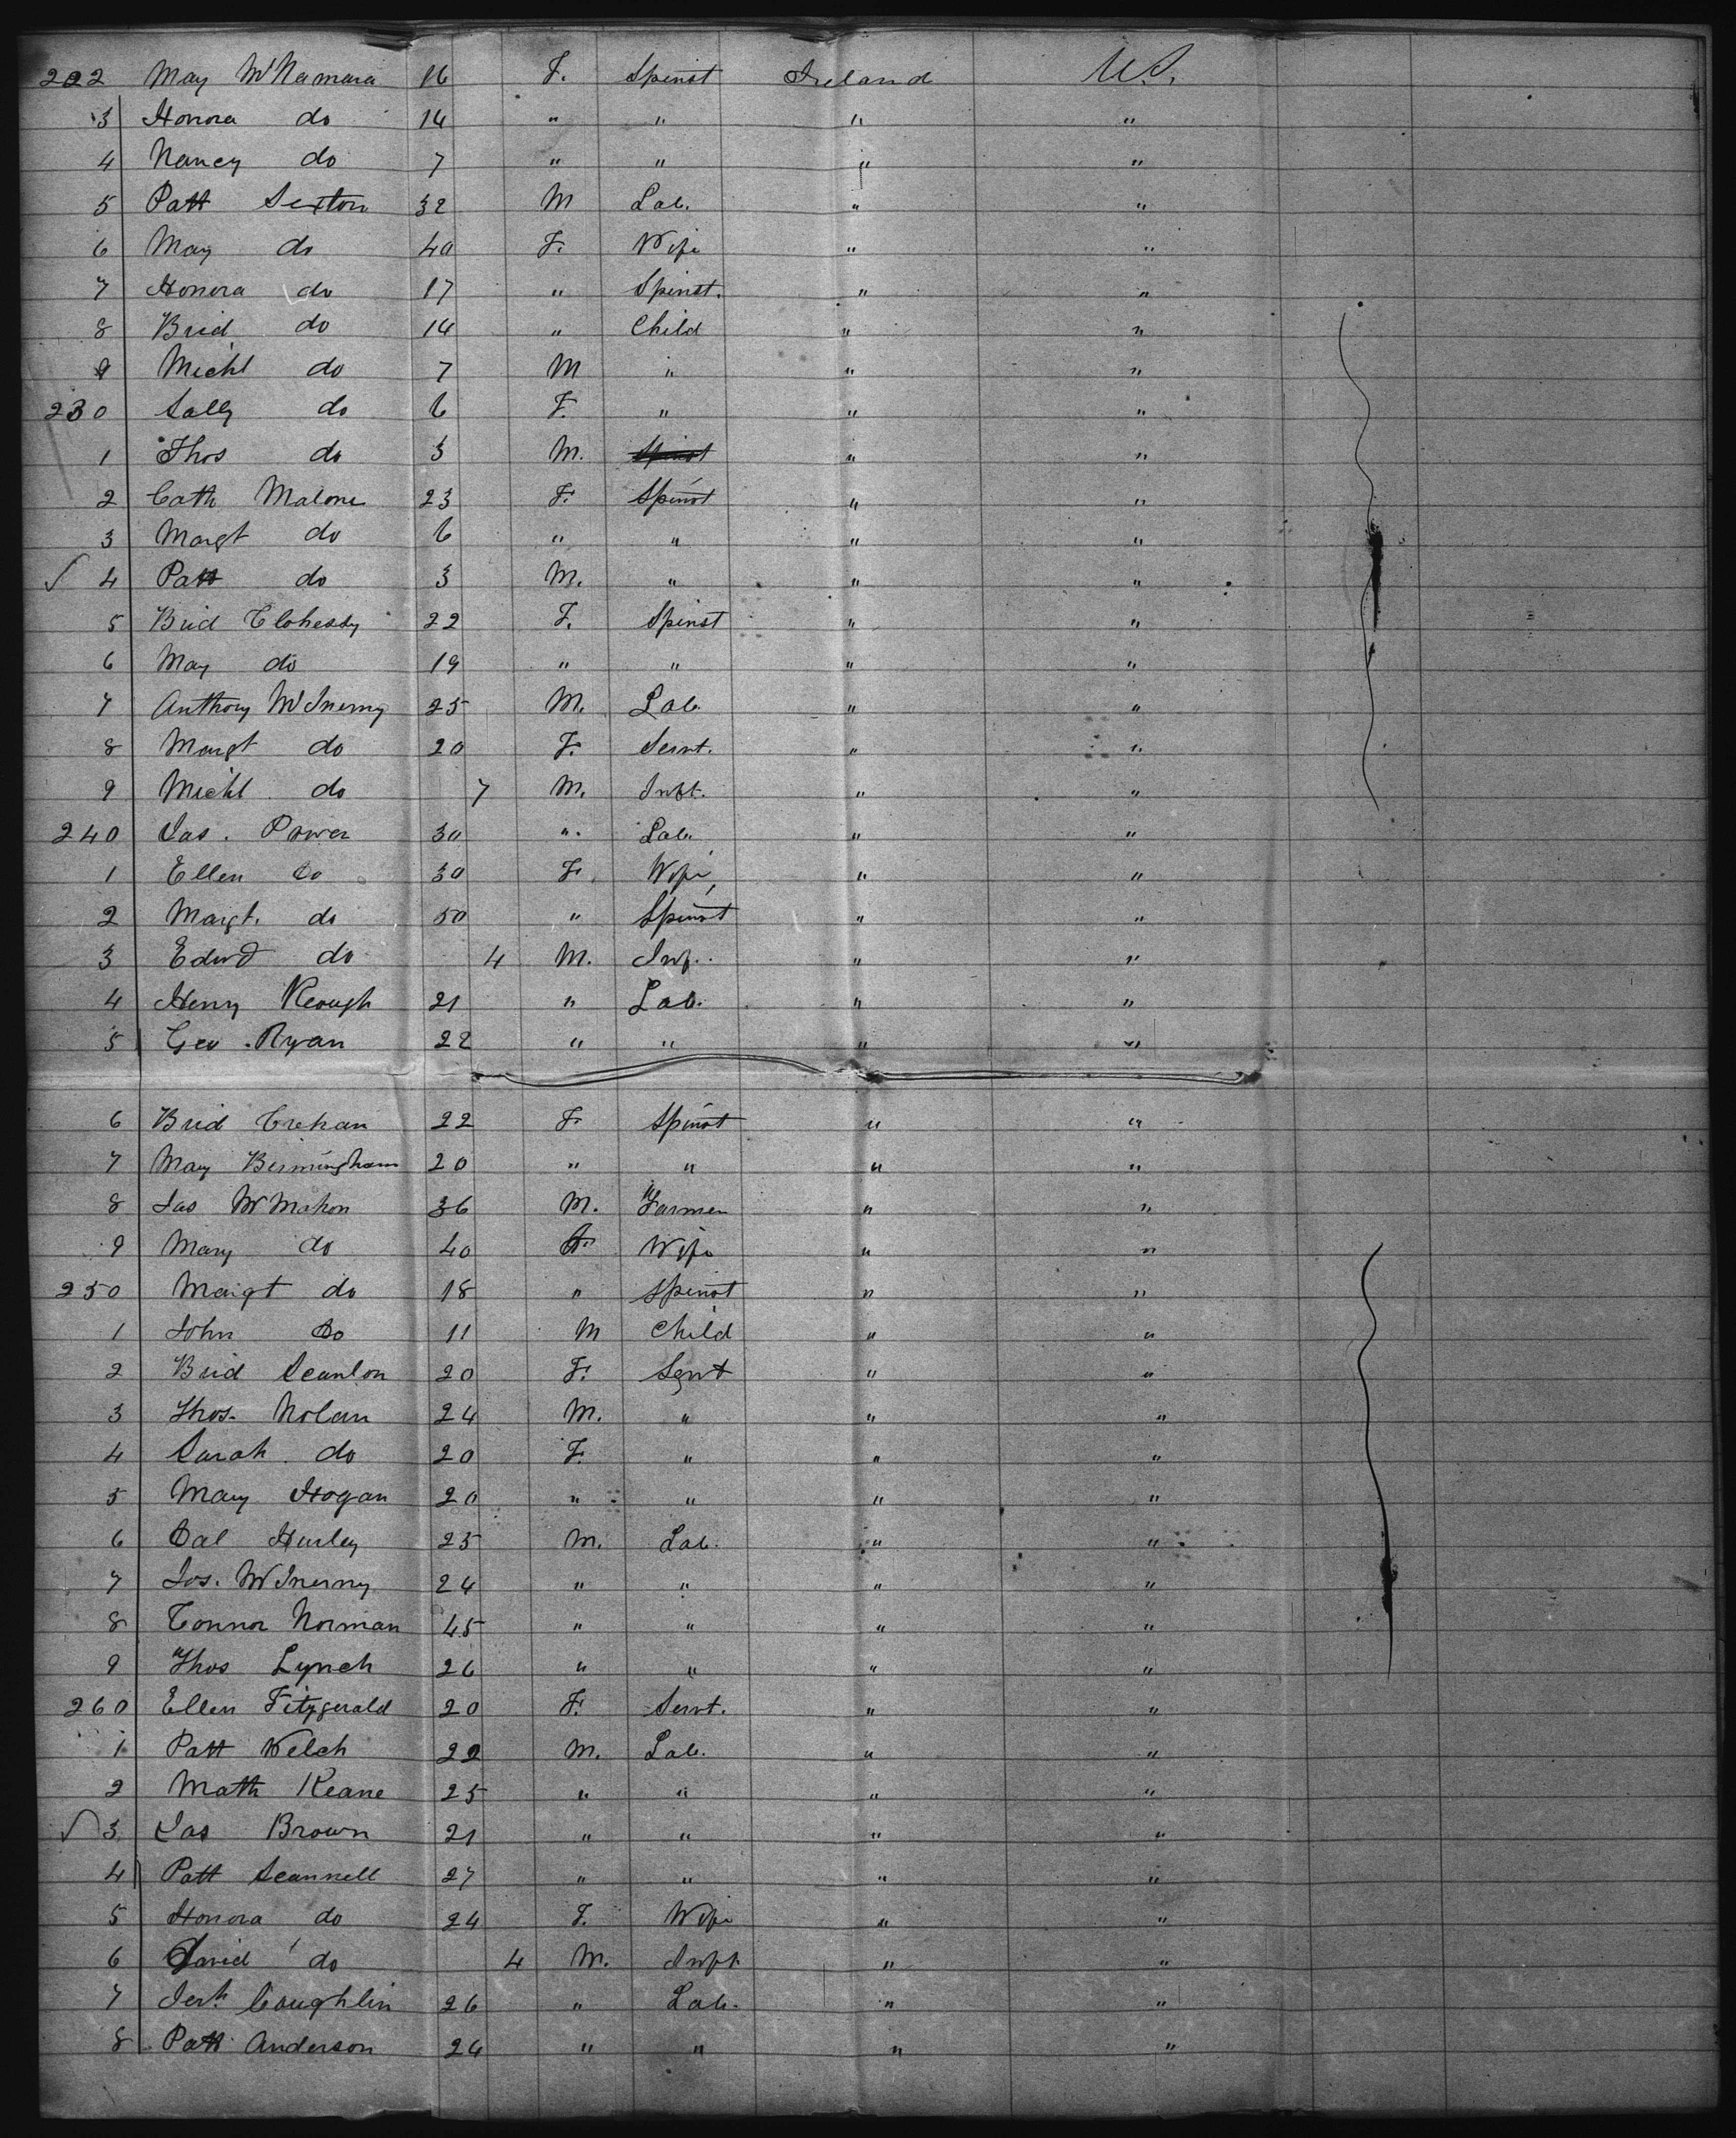 222 May McNamara 16 F. Spinst Ireland U.S.
3 Honora do 14 " " " "
4 Nancy do 7 " " " "
5 Patt Sexton 32 M Lab. " "
6 May do 40 F. Wife " "
7 Honora do 17 " Spinst. " "
8 Brid do 14 " Child " "
9 Michl do 7 M " " "
230 Sally do 6 F. " " "
1 Thos do 3 M. Spinst " "
2 Cath Malone 23 F. Spinst " "
3 Margt do 6 " " " "
√ 4 Patt do 3 M. " " "
5 Brid Clohessy 22 F. Spinst " "
6 May do 19 " " " "
7 Anthony McInerny 25 M. Lab. " "
8 Margt do 20 F. Servt. " "
9 Michl do 7 M. Inft. " "
240 Jas. Power 30 " Lab. " "
1 Ellen do 30 F. Wife " "
2 Margt. do 50 " Spinst " "
3 Edwd do 4 M. Inf. " "
4 Henry Keough 21 " Lab. " "
5 Geo. Ryan 22 " " " "
6 Brid Crehan 22 F. Spinst " "
7 May Birmingham 20 " " " "
8 Jas McMahon 36 M. Farmer " "
9 Mary do 40 F. Wife " "
250 Margt do 18 " Spinst " "
1 John do 11 M Child " "
2 Brid Scanlon 20 F. Servt " "
3 Thos. Nolan 24 M. " " "
4 Sarah do 20 F. " " "
5 Mary Hogan 20 " " " "
6 Dal Hurley 25 M. Lab. " "
7 Jos. McInerny 24 " " " "
8 Connor Norman 45 " " " "
9 Thos Lynch 26 " " " "
260 Ellen Fitzgerald 20 F. Servt. " "
1 Patt Welch 22 M. Lab. " "
2 Matth Keane 25 " " " "
√ 3 Jas Brown 21 " " " "
4 Patt Scannell 27 " " " "
5 Honora do 24 F. Wife " "
6 David do 4 M. Inft. " "
7 Jerh. Coughlin 26 " Lab. " "
8 Patt Anderson 24 " " " "